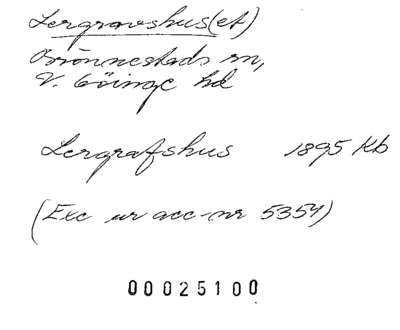 Lergravshus(et)
Brönnestads sn,
V. Göinge hd
Lergrafshus 1895 Kb
(Exc ur acc-nr 5354)
00025100